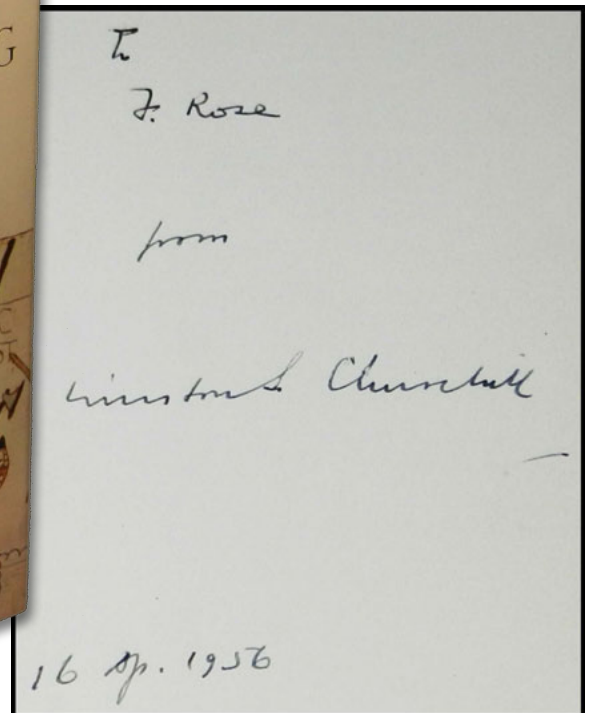 G
To
F. Rose
from
Winston S Churchill
16 Ap. 1956